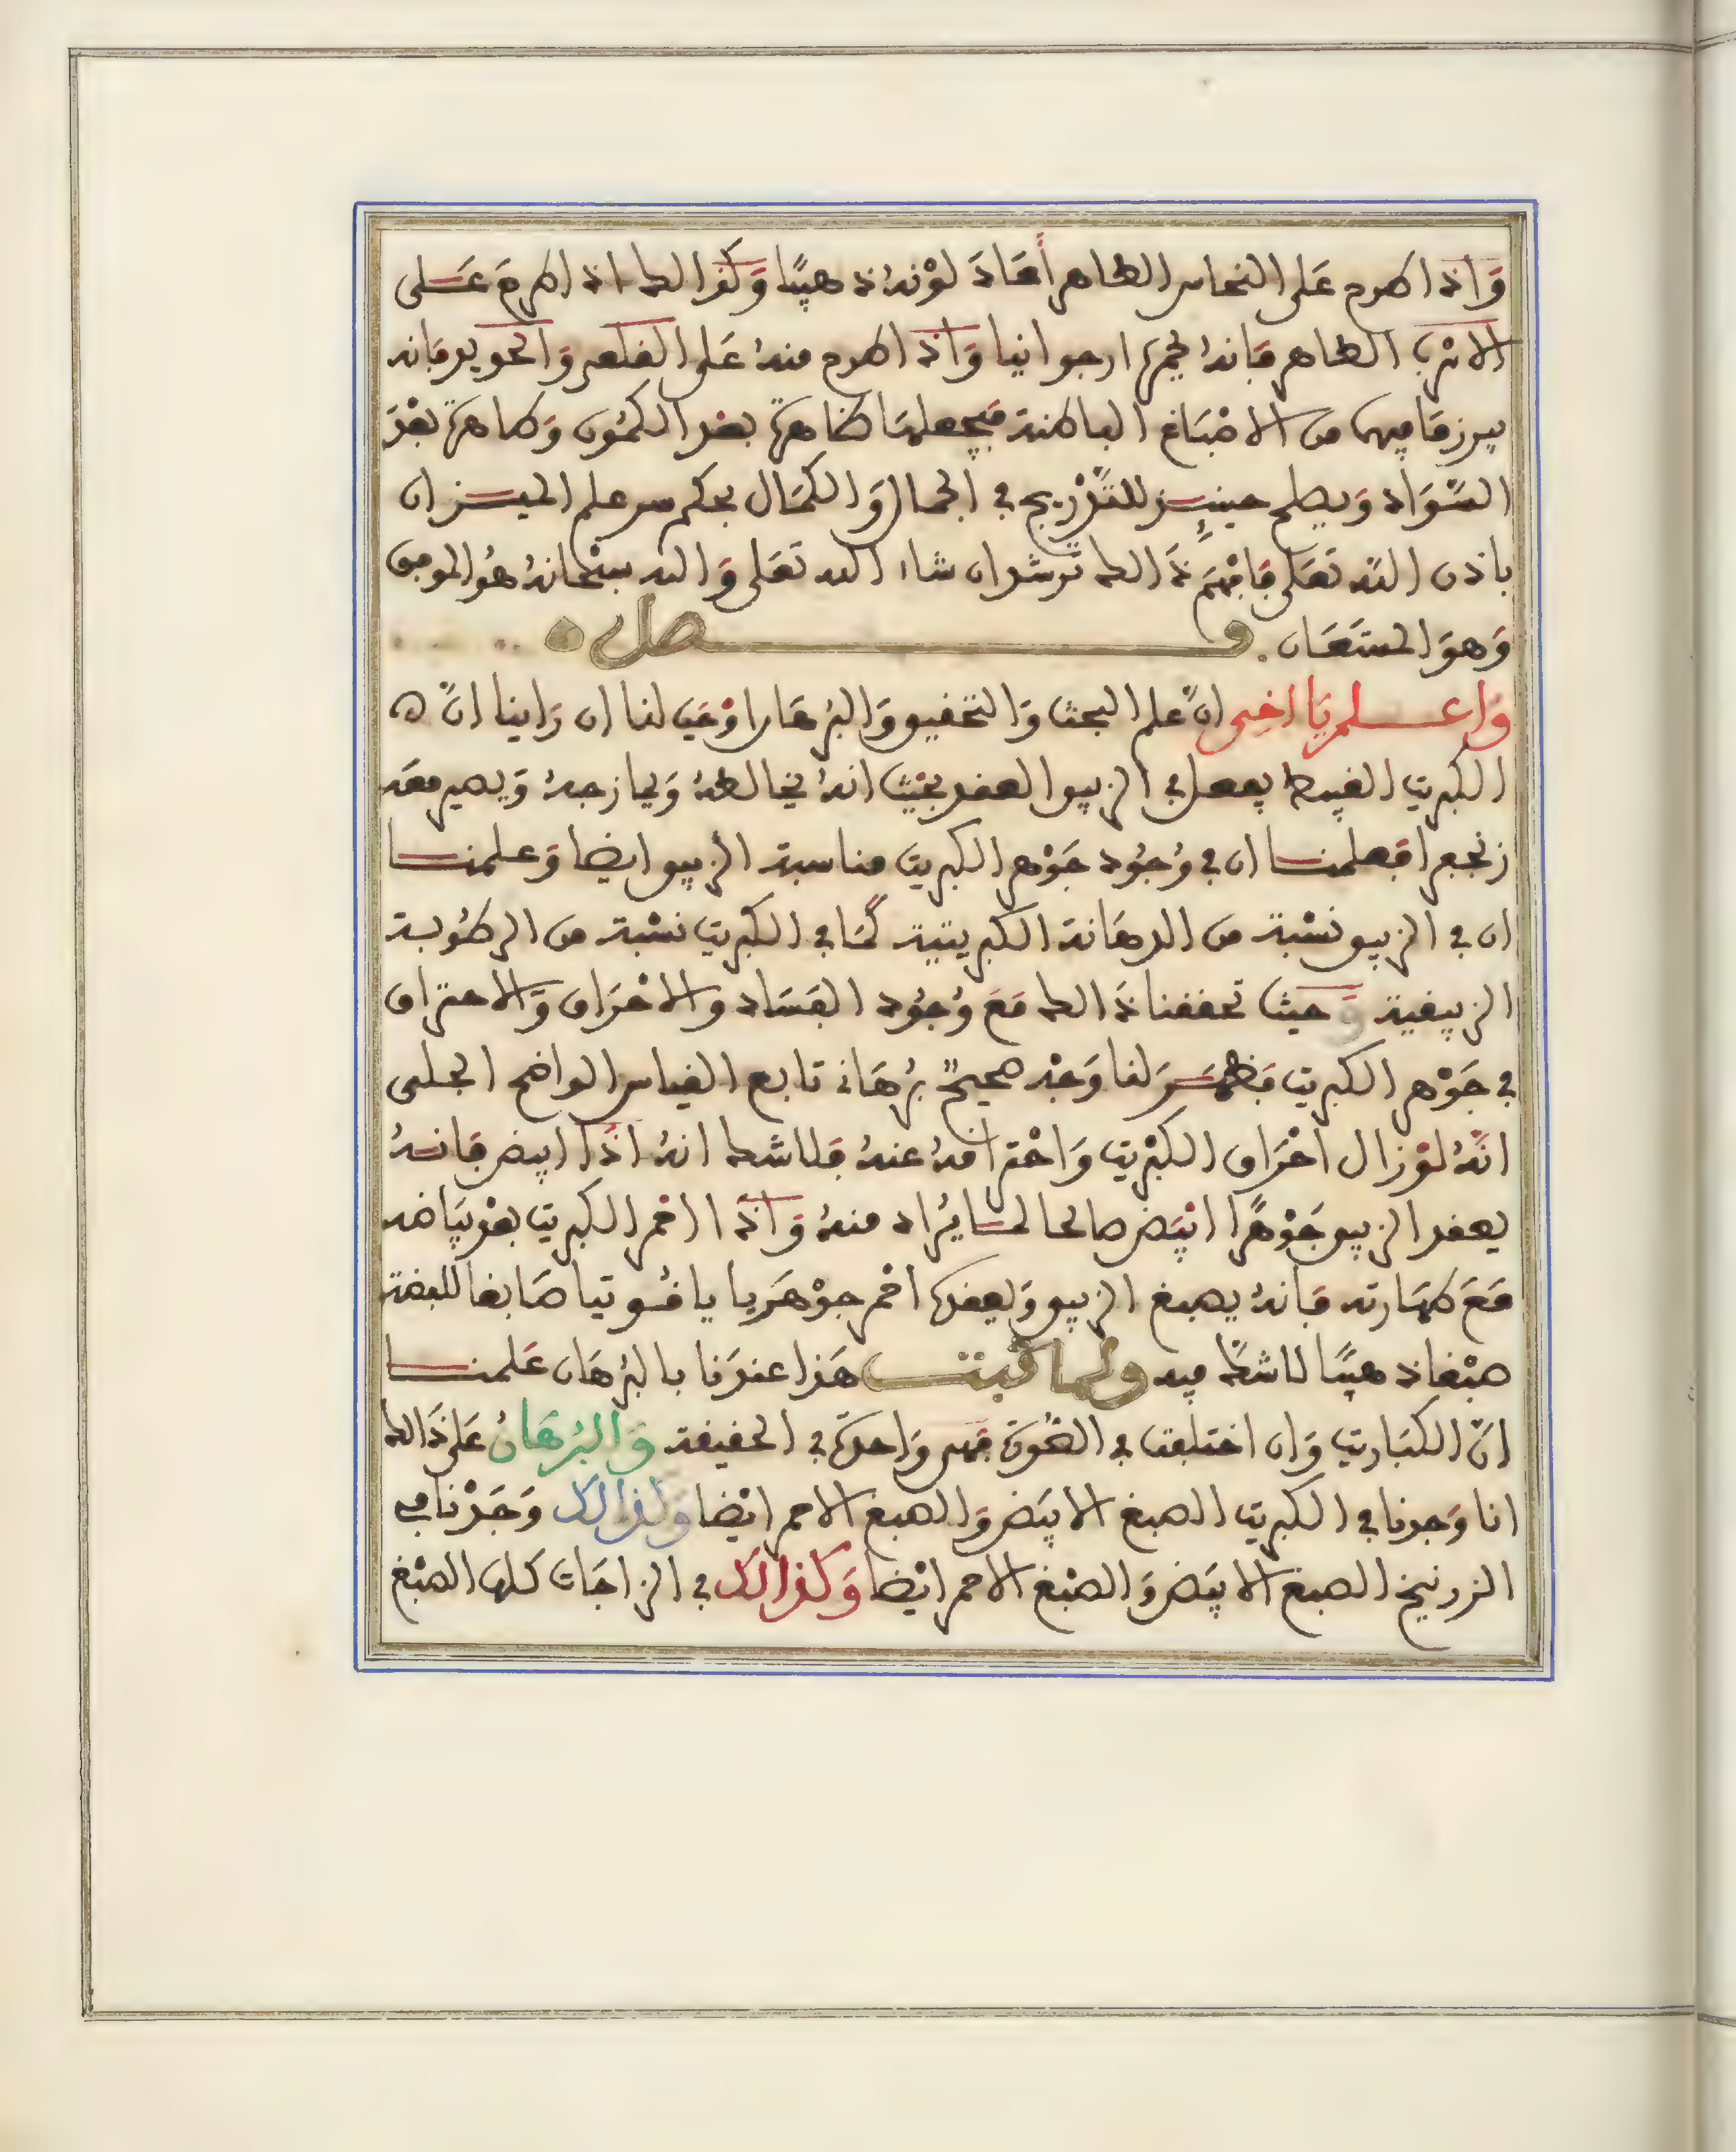 وَاذا طرح عَلى النحاس الطاهر أعَادَ لوْنهُ ذهبيًّا وَكذالك اذا طرحَ عَلى
الاسْرب الطاهر فَانهُ يحمرّه ارجوانيا وَاذا طرح منهُ عَلى القلعي وَالحديد فانه
يبرز مَا فيهما من الاصْبَاغ الباطنة فيجعلهَا ظاهرة بعْد الكمُون وَطاهرة بعْدَ
السَّوَاد وَيصلح حينئِذ للتَّدْريج في الجمال وَالكمَال بحكم سر علم الميزان
باذن اللَّه تعَلى فَافهَم ذَالك ترشد ان شاء الله تعَلى وَالله سبْحَانهُ هُو الموفق
وَهوَ المستَعَان فصل
وَاعلم يَا اخي انّ علم البحث وَالتحقيق وَالبرْهَان اوْجَب لنا ان رَاينا انّ
الكبريت الغبيط يفعل في الزيبق العقد بحَيْث انهُ يخالطهُ وَيمازجهُ وَيصير معَه
زنجفرا فَعلمنا ان في وُجُود جَوْهر الكبريت مناسبة الزيبق ايضا وَعلمنا
ان في الزيبق نسْبة من الدهَانة الكبريتية كمَا في الكبريت نسْبة من الرطُوبة
الزيبقية وَحيث تحققنا ذَالك مَعَ وُجُود الفسَاد والاحْرَاق وَالاحتراق
في جَوْهر الكبريت فَظهَر لنا وَجْه صحيحٌ برْهَاني تابع القياس الواضح الجلى
انّهُ لوْ زال احْرَاق الكبْريت وَاحْتراقهُ عنهُ فلا شك انهُ اذَا ابيض فَانهُ
يعقد الزيبق جَوْهرًا ابْيَض صالحا لما يُرَاد منهُ وَاذَا احمر الكبريت بعْد بيَاضه
مَعَ طهَارته فَانهُ يصبغ الزيبق وَيعقدهُ احمر جوْهَريا ياقُوتيا صَابغا للفضة
صبْغا ذهبيًا لا شكَّ فيه ولما ثبت هَذا عندَنا بالبرْهَان عَلمنا
انّ الكبَاريت وَان اختلفت في الصُّورَة فَهى وَاحدَة في الحقيقة وَالبُرْهَانُ عَلى ذَالك
انا وَجدنا في الكبريت الصبغ الابيَض وَالصبغ الاحمر ايْضا وَكذالك وَجَدْنا في
الزرنيخ الصبغ الابيَض وَالصبْغ الاحمر ايْضا وَكذالك في الزاجَات كلها الصبْغ